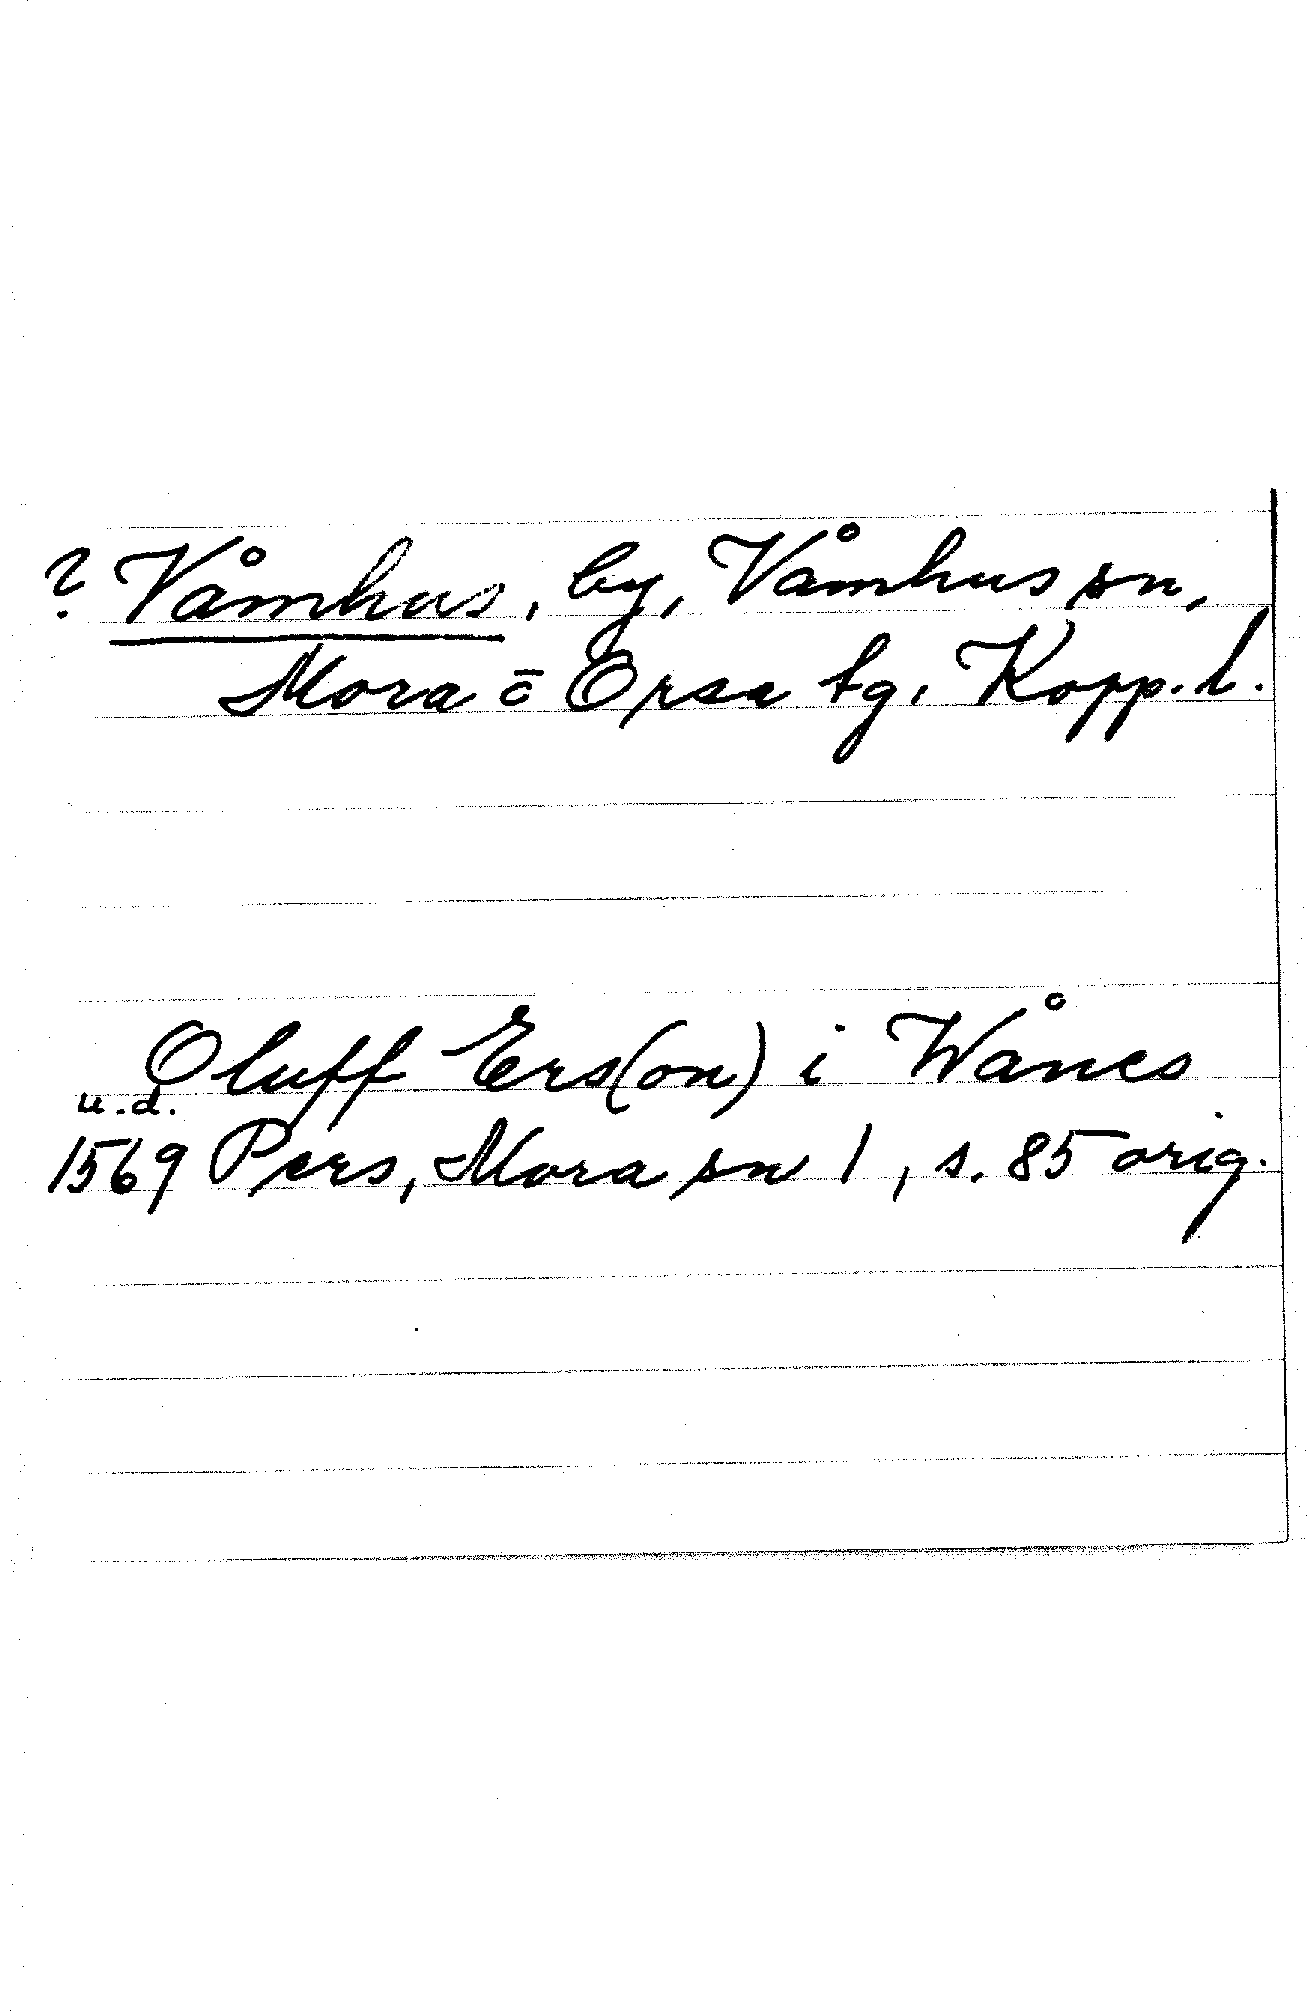 ? Våmhus, by, Våmhus sn,
Mora ō Orsa tg, Kopp. l.
Oluff Ers(on) i Wånes
u.d.
1569 Pers, Mora sn 1, s. 85 orig.